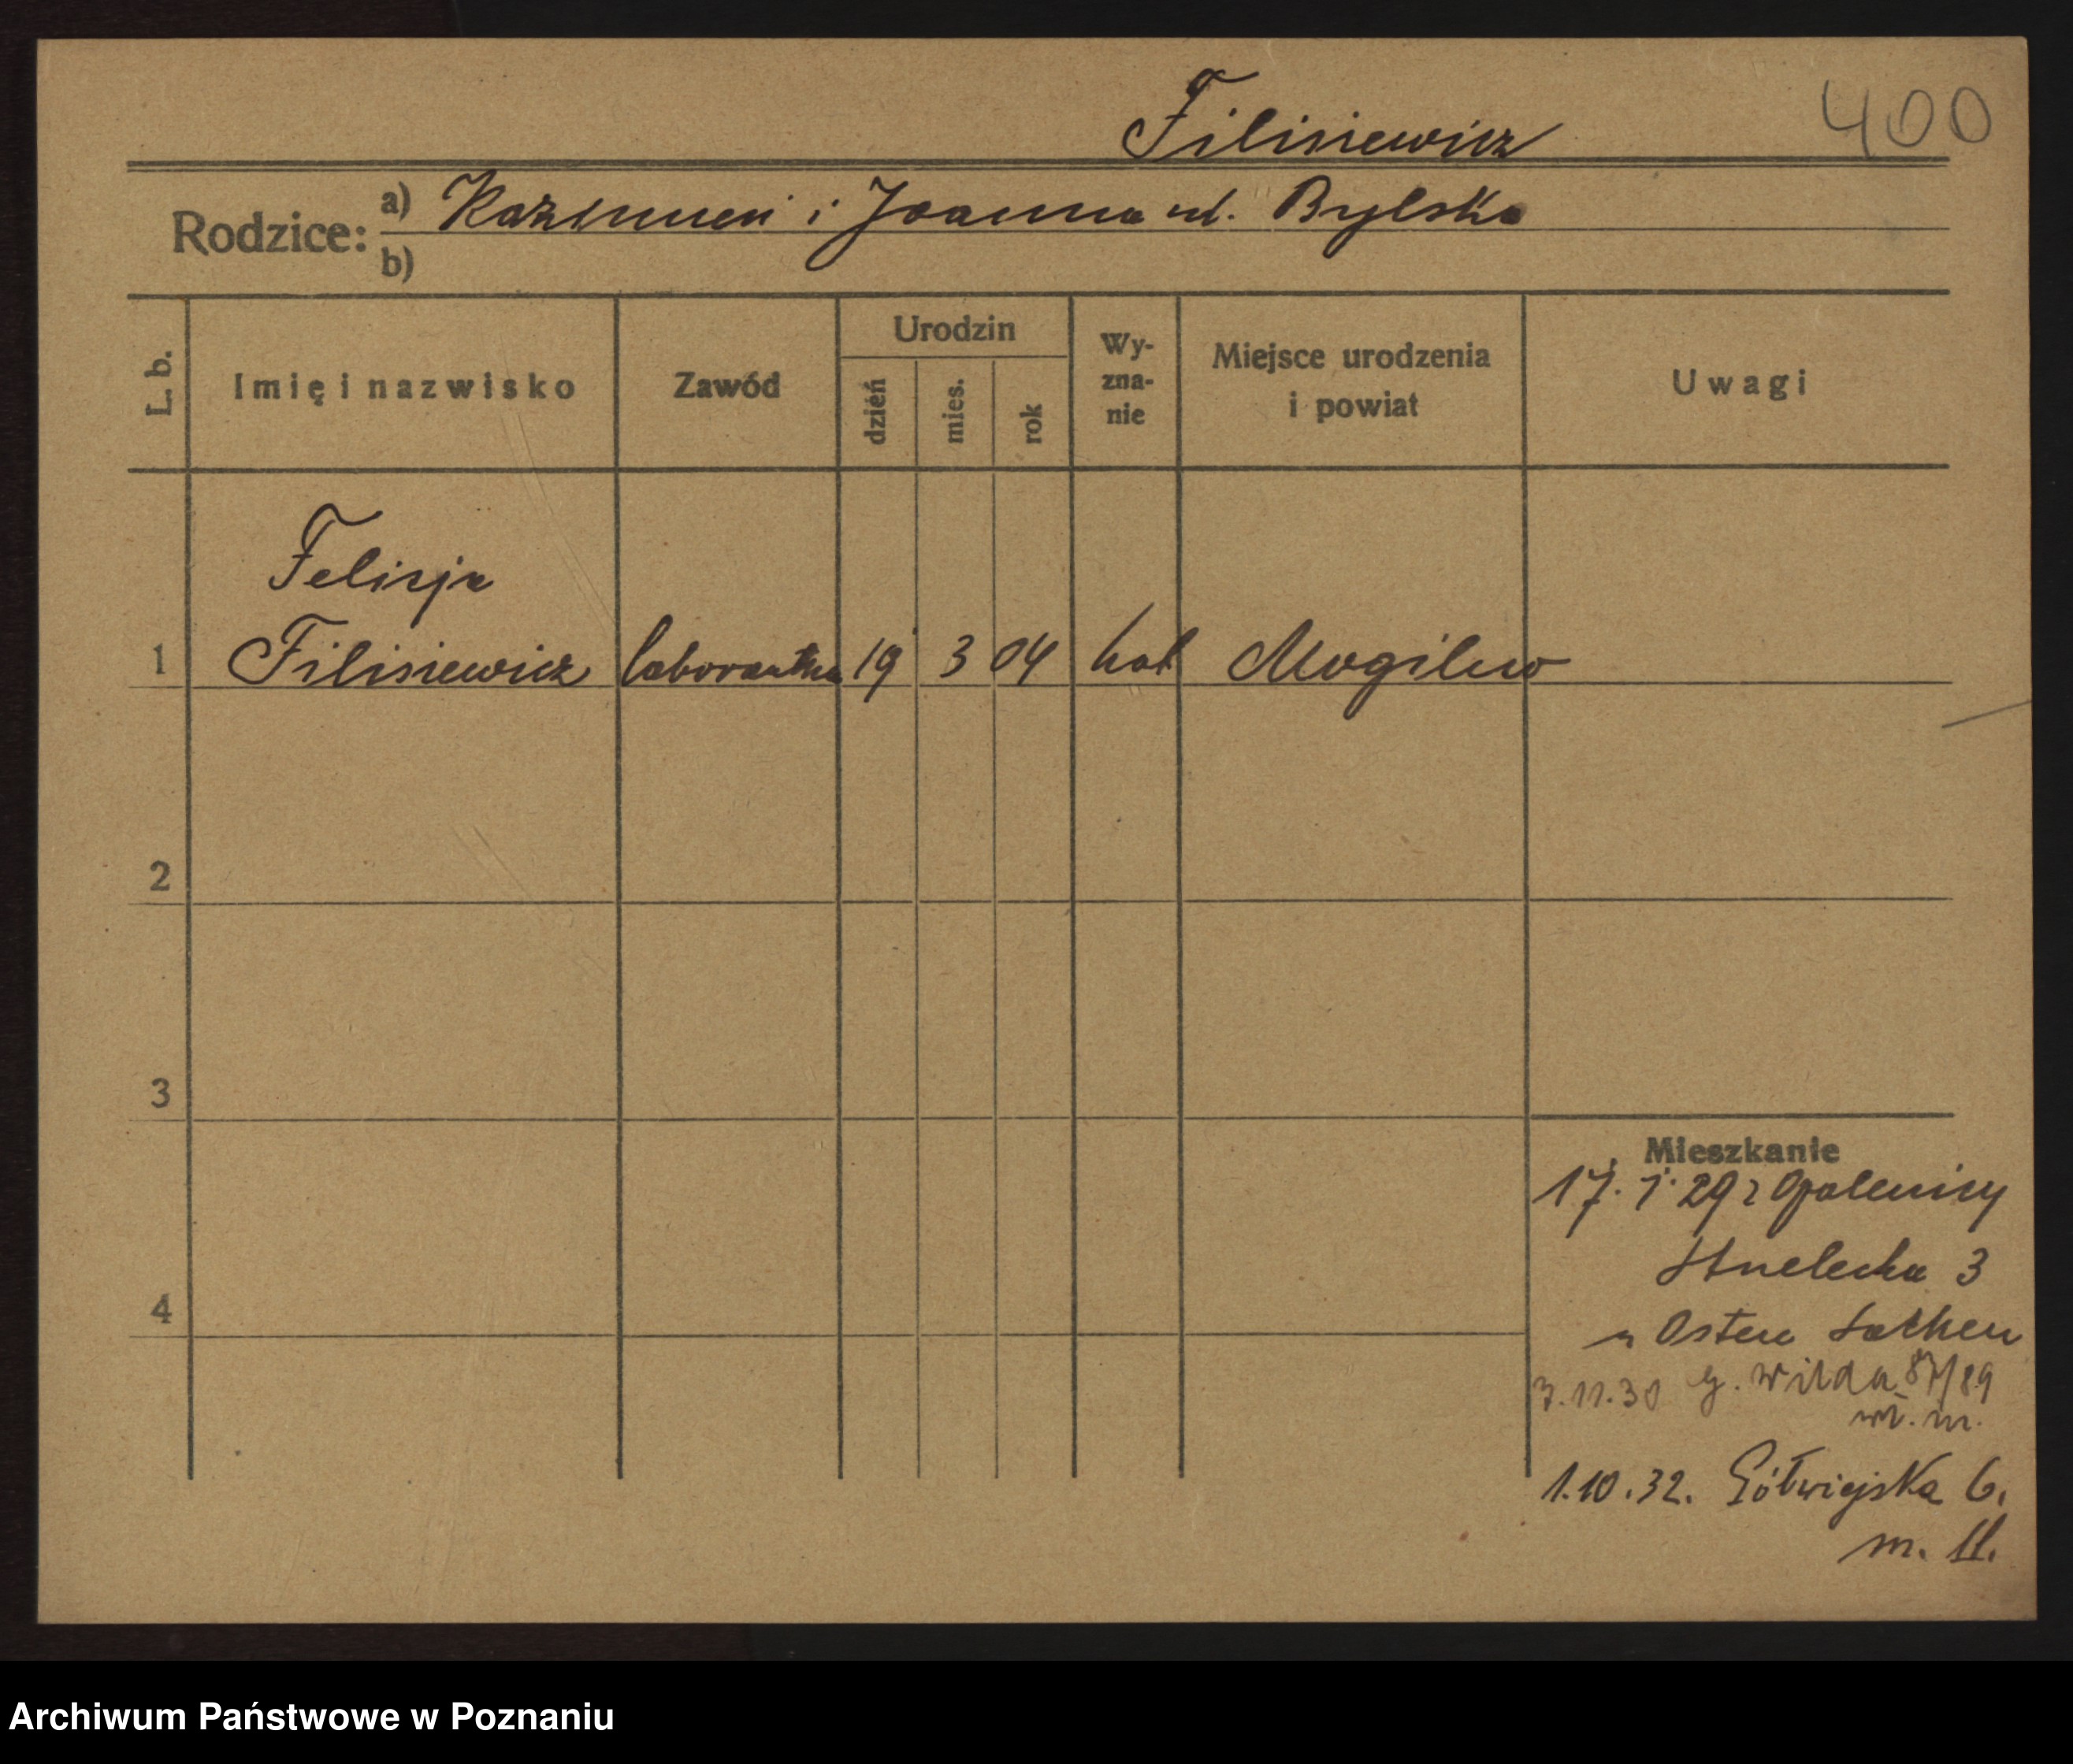 Filisiewicz
400
Rodzice: a) Kazimierz i Joanna ul. Bylska
b)
L. b.
Imię i nazwisko
Zawód
Urodzin
dzień
mies.
rok
Wy-
zna-
nie
Miejsce urodzenia
i powiat
Uwagi
Felicja
1 Filisiewicz laborantka 19 3 04 kat Mogilew
2
3
4
Mieszkanie
17. 1. 29 z Opalenicy
Strzelecka 3
u Osten Sacken
7.11.30 G. Wilda 87/89
1.10.32. Półwiejska 6.
m. 11.
Archiwum Państwowe w Poznaniu